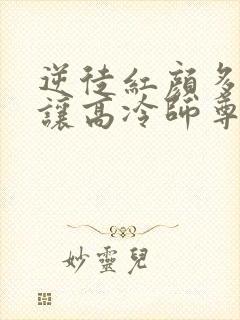 逆徒紅顏多
讓高冷師尊
妙靈兒